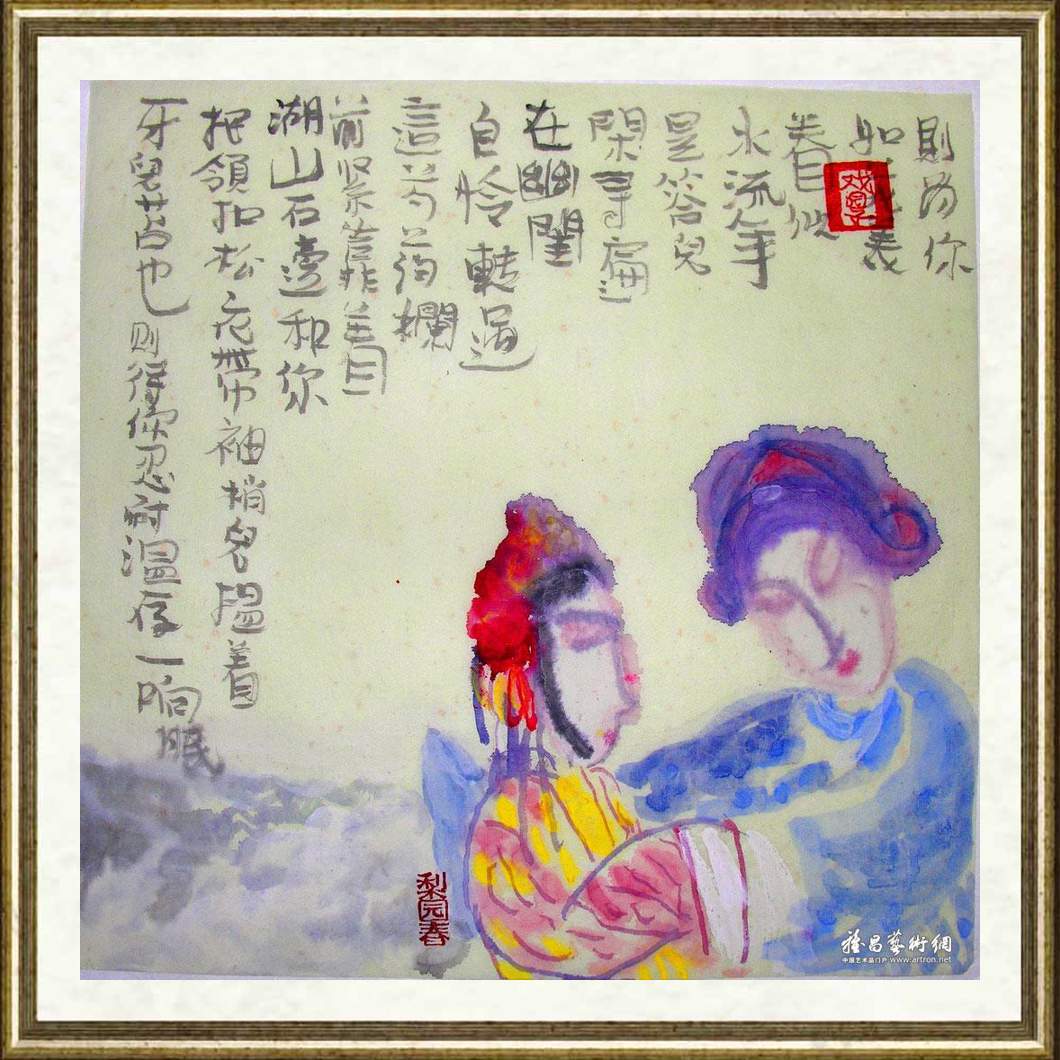 則为你
如美
眷似
水流年
是答兒
閑尋遍
在幽閨
自怜轉過
這芍药欄
前紧靠着
湖山石邊和你
把領扣松衣帶袖梢兒揾着
牙兒苫也则待你忍耐温存一晌眠
梨园春
雅昌藝術網
中国艺术品门户 www.artron.net